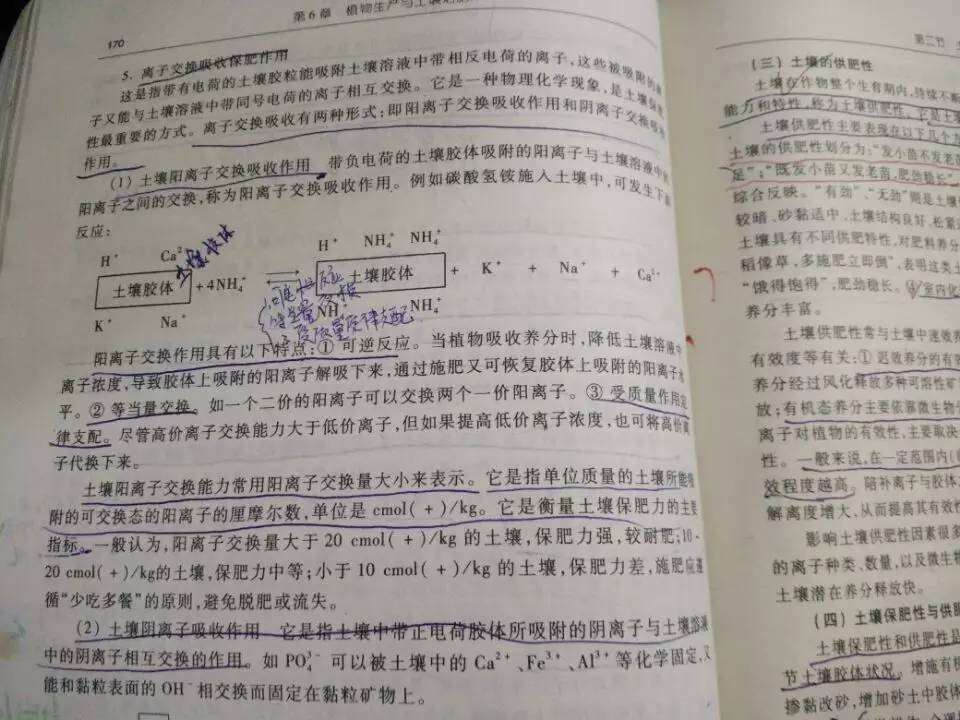 170
第6章 植物生产与土壤
5. 离子交换吸收保肥作用
这是指带有电荷的土壤胶粒能吸附土壤溶液中带相反电荷的离子,这些被吸附的离
子又能与土壤溶液中带同号电荷的离子相互交换。它是一种物理化学现象,是土壤保肥
性最重要的方式。离子交换吸收有两种形式:即阳离子交换吸收作用和阴离子交换吸收
作用。
(1) 土壤阳离子交换吸收作用 带负电荷的土壤胶体吸附的阳离子与土壤溶液中的
阳离子之间的交换,称为阳离子交换吸收作用。例如碳酸氢铵施入土壤中,可发生下
反应:
H⁺ Ca² 土壤胶体 H⁺ NH₄⁺ NH₄⁺
土壤胶体 + 4NH₄⁺ ⇌ 土壤胶体 + K⁺ + Na⁺ + Ca²⁺
K⁺ Na⁺ NH NH₄⁺
可逆反应
等当量交换
受质量定律支配
阳离子交换作用具有以下特点:① 可逆反应。当植物吸收养分时,降低土壤溶液中
离子浓度,导致胶体上吸附的阳离子解吸下来,通过施肥又可恢复胶体上吸附的阳离子水
平。② 等当量交换。如一个二价的阳离子可以交换两个一价阳离子。③ 受质量作用定
律支配。尽管高价离子交换能力大于低价离子,但如果提高低价离子浓度,也可将高价离
子代换下来。
土壤阳离子交换能力常用阳离子交换量大小来表示。它是指单位质量的土壤所能吸
附的可交换态的阳离子的厘摩尔数,单位是 cmol(+)/kg。它是衡量土壤保肥力的主要
指标。一般认为,阳离子交换量大于 20 cmol(+)/kg 的土壤,保肥力强,较耐肥;10-
20 cmol(+)/kg的土壤,保肥力中等;小于 10 cmol(+)/kg 的土壤,保肥力差,施肥应遵
循“少吃多餐”的原则,避免脱肥或流失。
(2) 土壤阴离子吸收作用 它是指土壤中带正电荷胶体所吸附的阴离子与土壤溶液
中的阴离子相互交换的作用。如 PO₄³⁻ 可以被土壤中的 Ca²⁺、Fe³⁺、Al³⁺ 等化学固定,又
能和黏粒表面的 OH⁻ 相交换而固定在黏粒矿物上。
第二节
(三) 土壤的供肥性
土壤在作物整个生育期内,持续不断
能力和特性,称为土壤供肥性。它是土壤
土壤供肥性主要表现在以下几个方
土壤的供肥性划分为:“发小苗不发老苗
足”;“既发小苗又发老苗,肥劲稳长”
综合反映。“有劲”、“无劲”则是土壤
较暗、砂黏适中、土壤结构良好、松紧适
土壤具有不同供肥特性,对肥料养分
稻像草,多施肥立即倒”,表明这类土
“饿得饱得”,肥劲稳长。④室内化
养分丰富。
土壤供肥性常与土壤中速效养
有效度等有关:① 迟效养分的有效
养分经过风化释放多种可溶性矿
放;有机态养分主要依靠微生物分
离子对植物的有效性,主要取决
性。一般来说,在一定范围内(
效程度越高。陪补离子与胶体
解离度增大、从而提高其有效性
影响土壤供肥性因素很多
的离子种类、数量,以及微生物
土壤潜在养分释放快。
(四) 土壤保肥性与供肥
土壤保肥性和供肥性是
节土壤胶体状况。增施有机
掺黏改砂,增加砂土中胶体